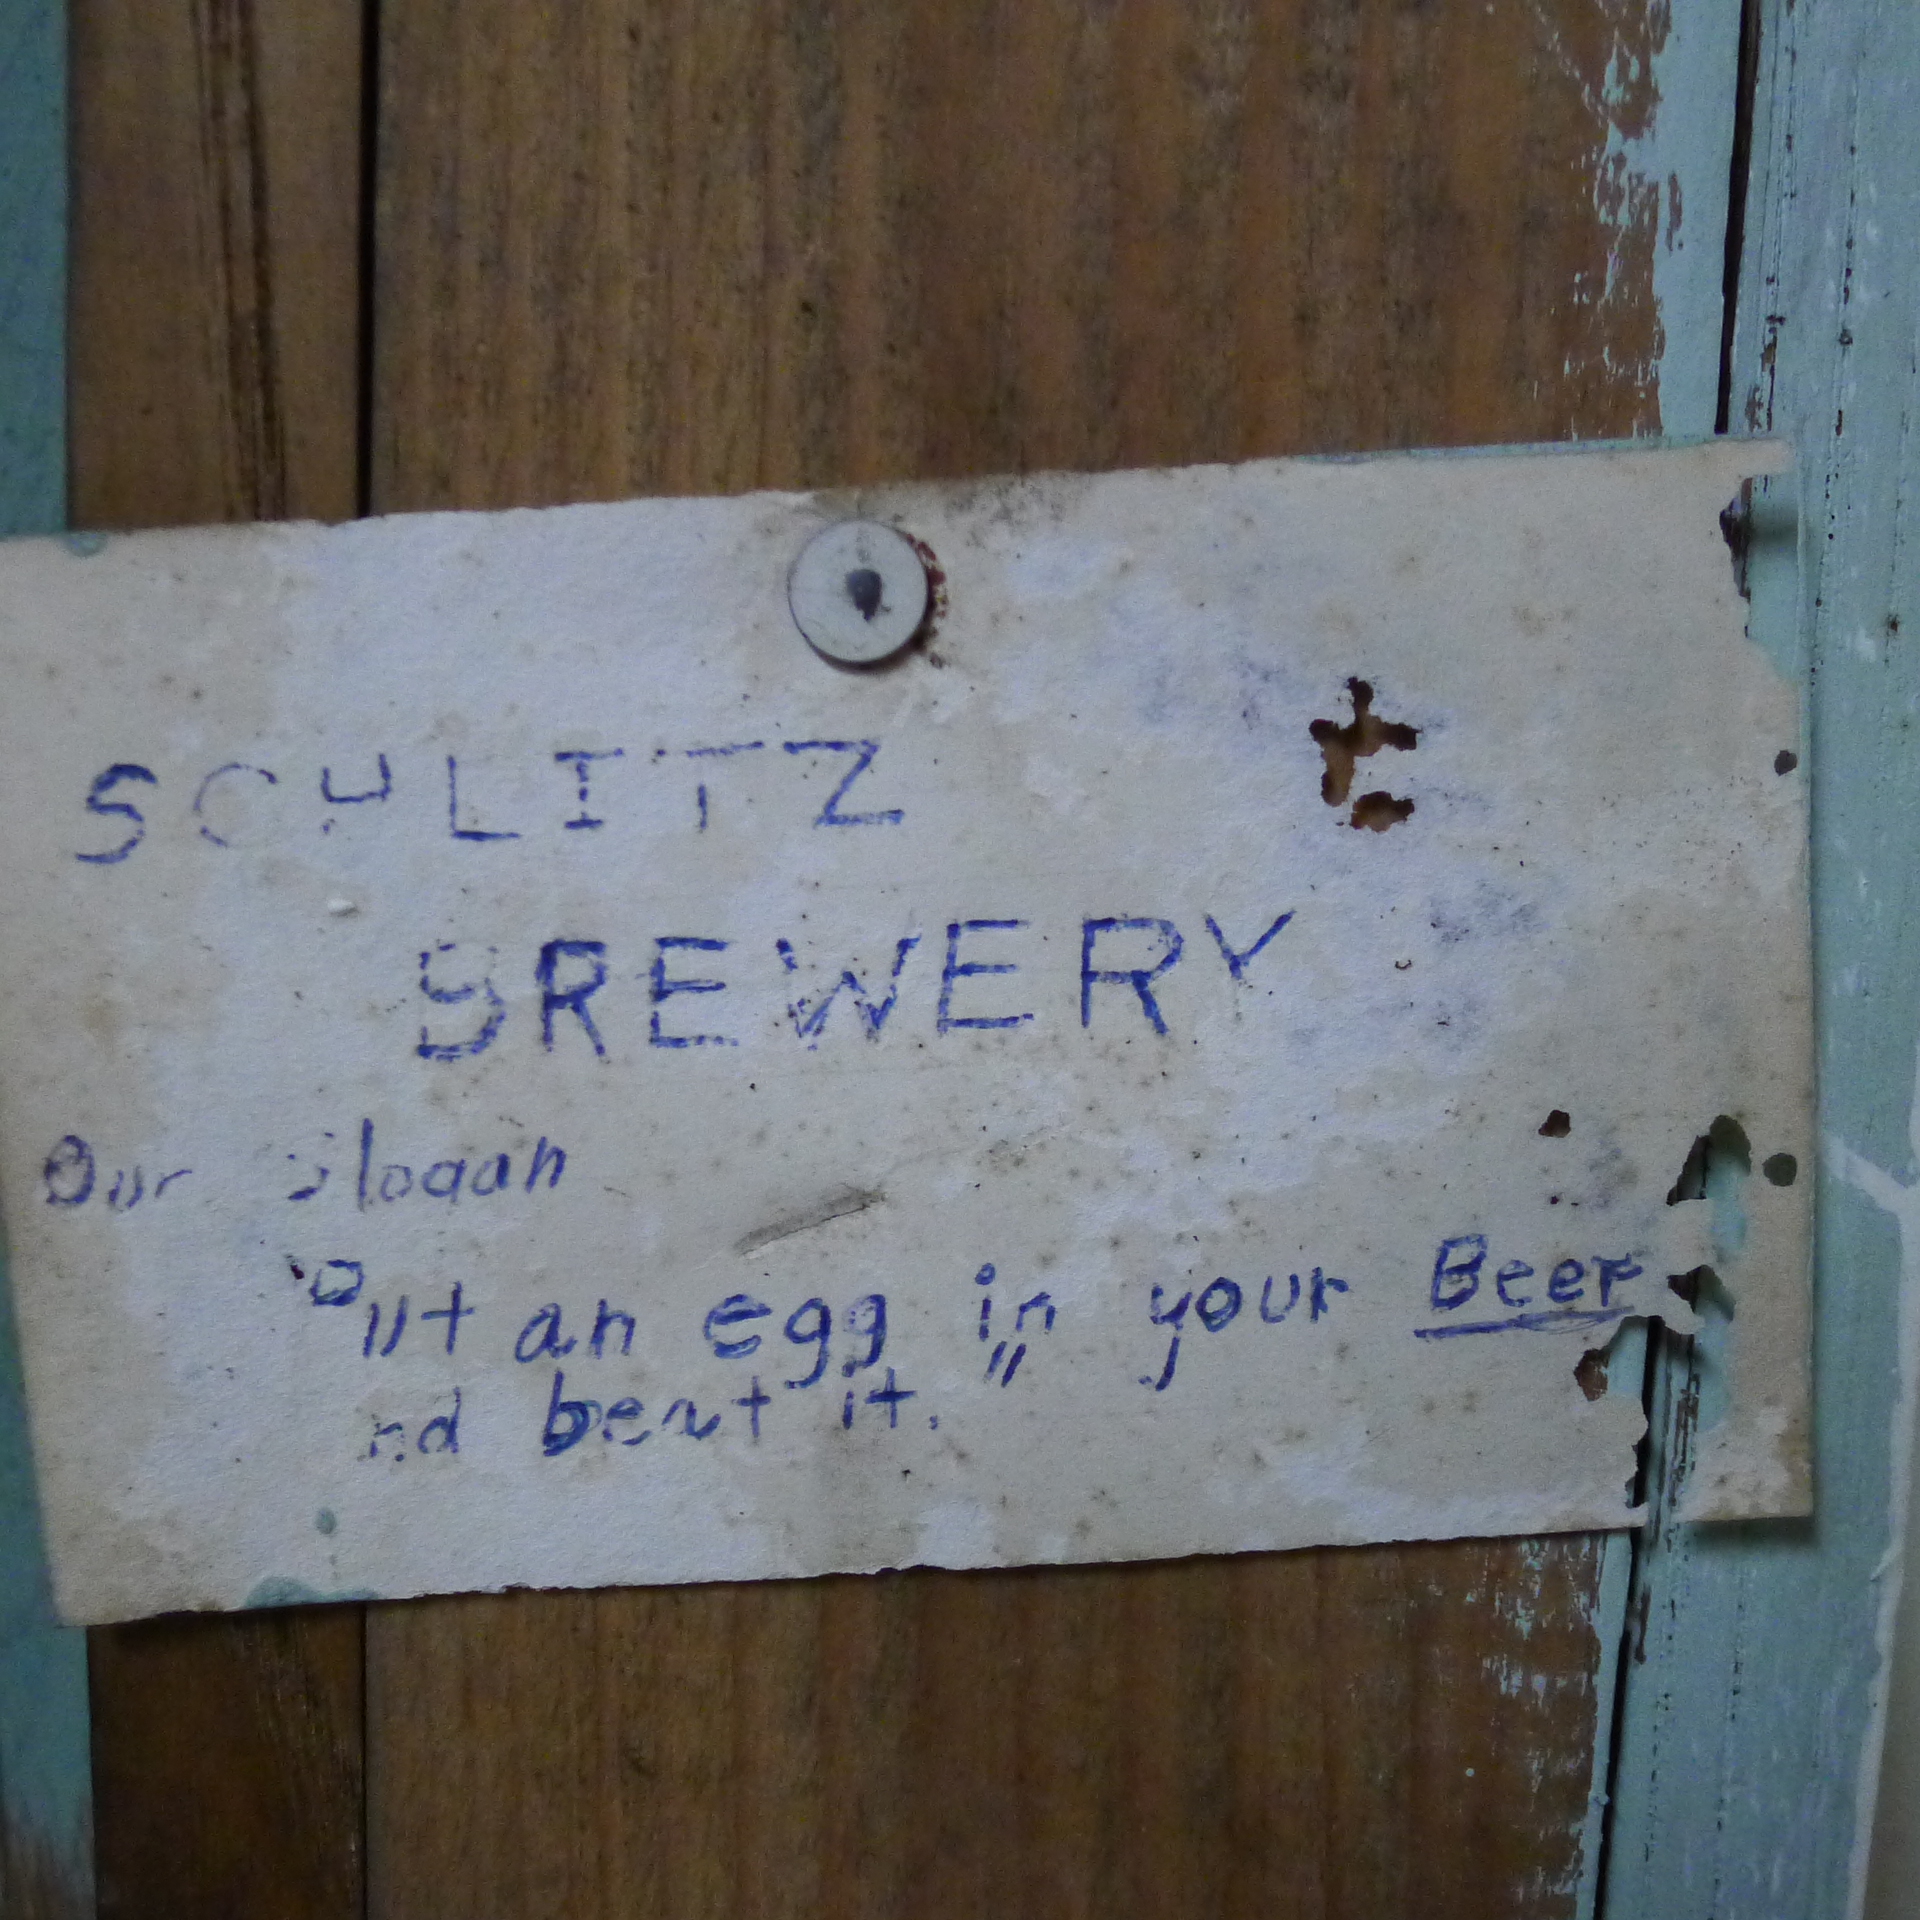 SCHLITZ
BREWERY
Our slogan
"Put an egg in your Beer
and beat it."